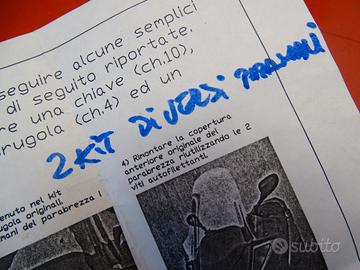 seguire alcune semplici
di seguito riportate.
re una chiave (ch.10),
rugola (ch.4) ed un
2 KIT DIVERSI PARAMANI
4) Rimontare la copertura
anteriore originale del
parabrezza riutilizzando le 2
viti autofilettanti.
enuto nel kit
ugola originali.
mani del parabrezza
subito